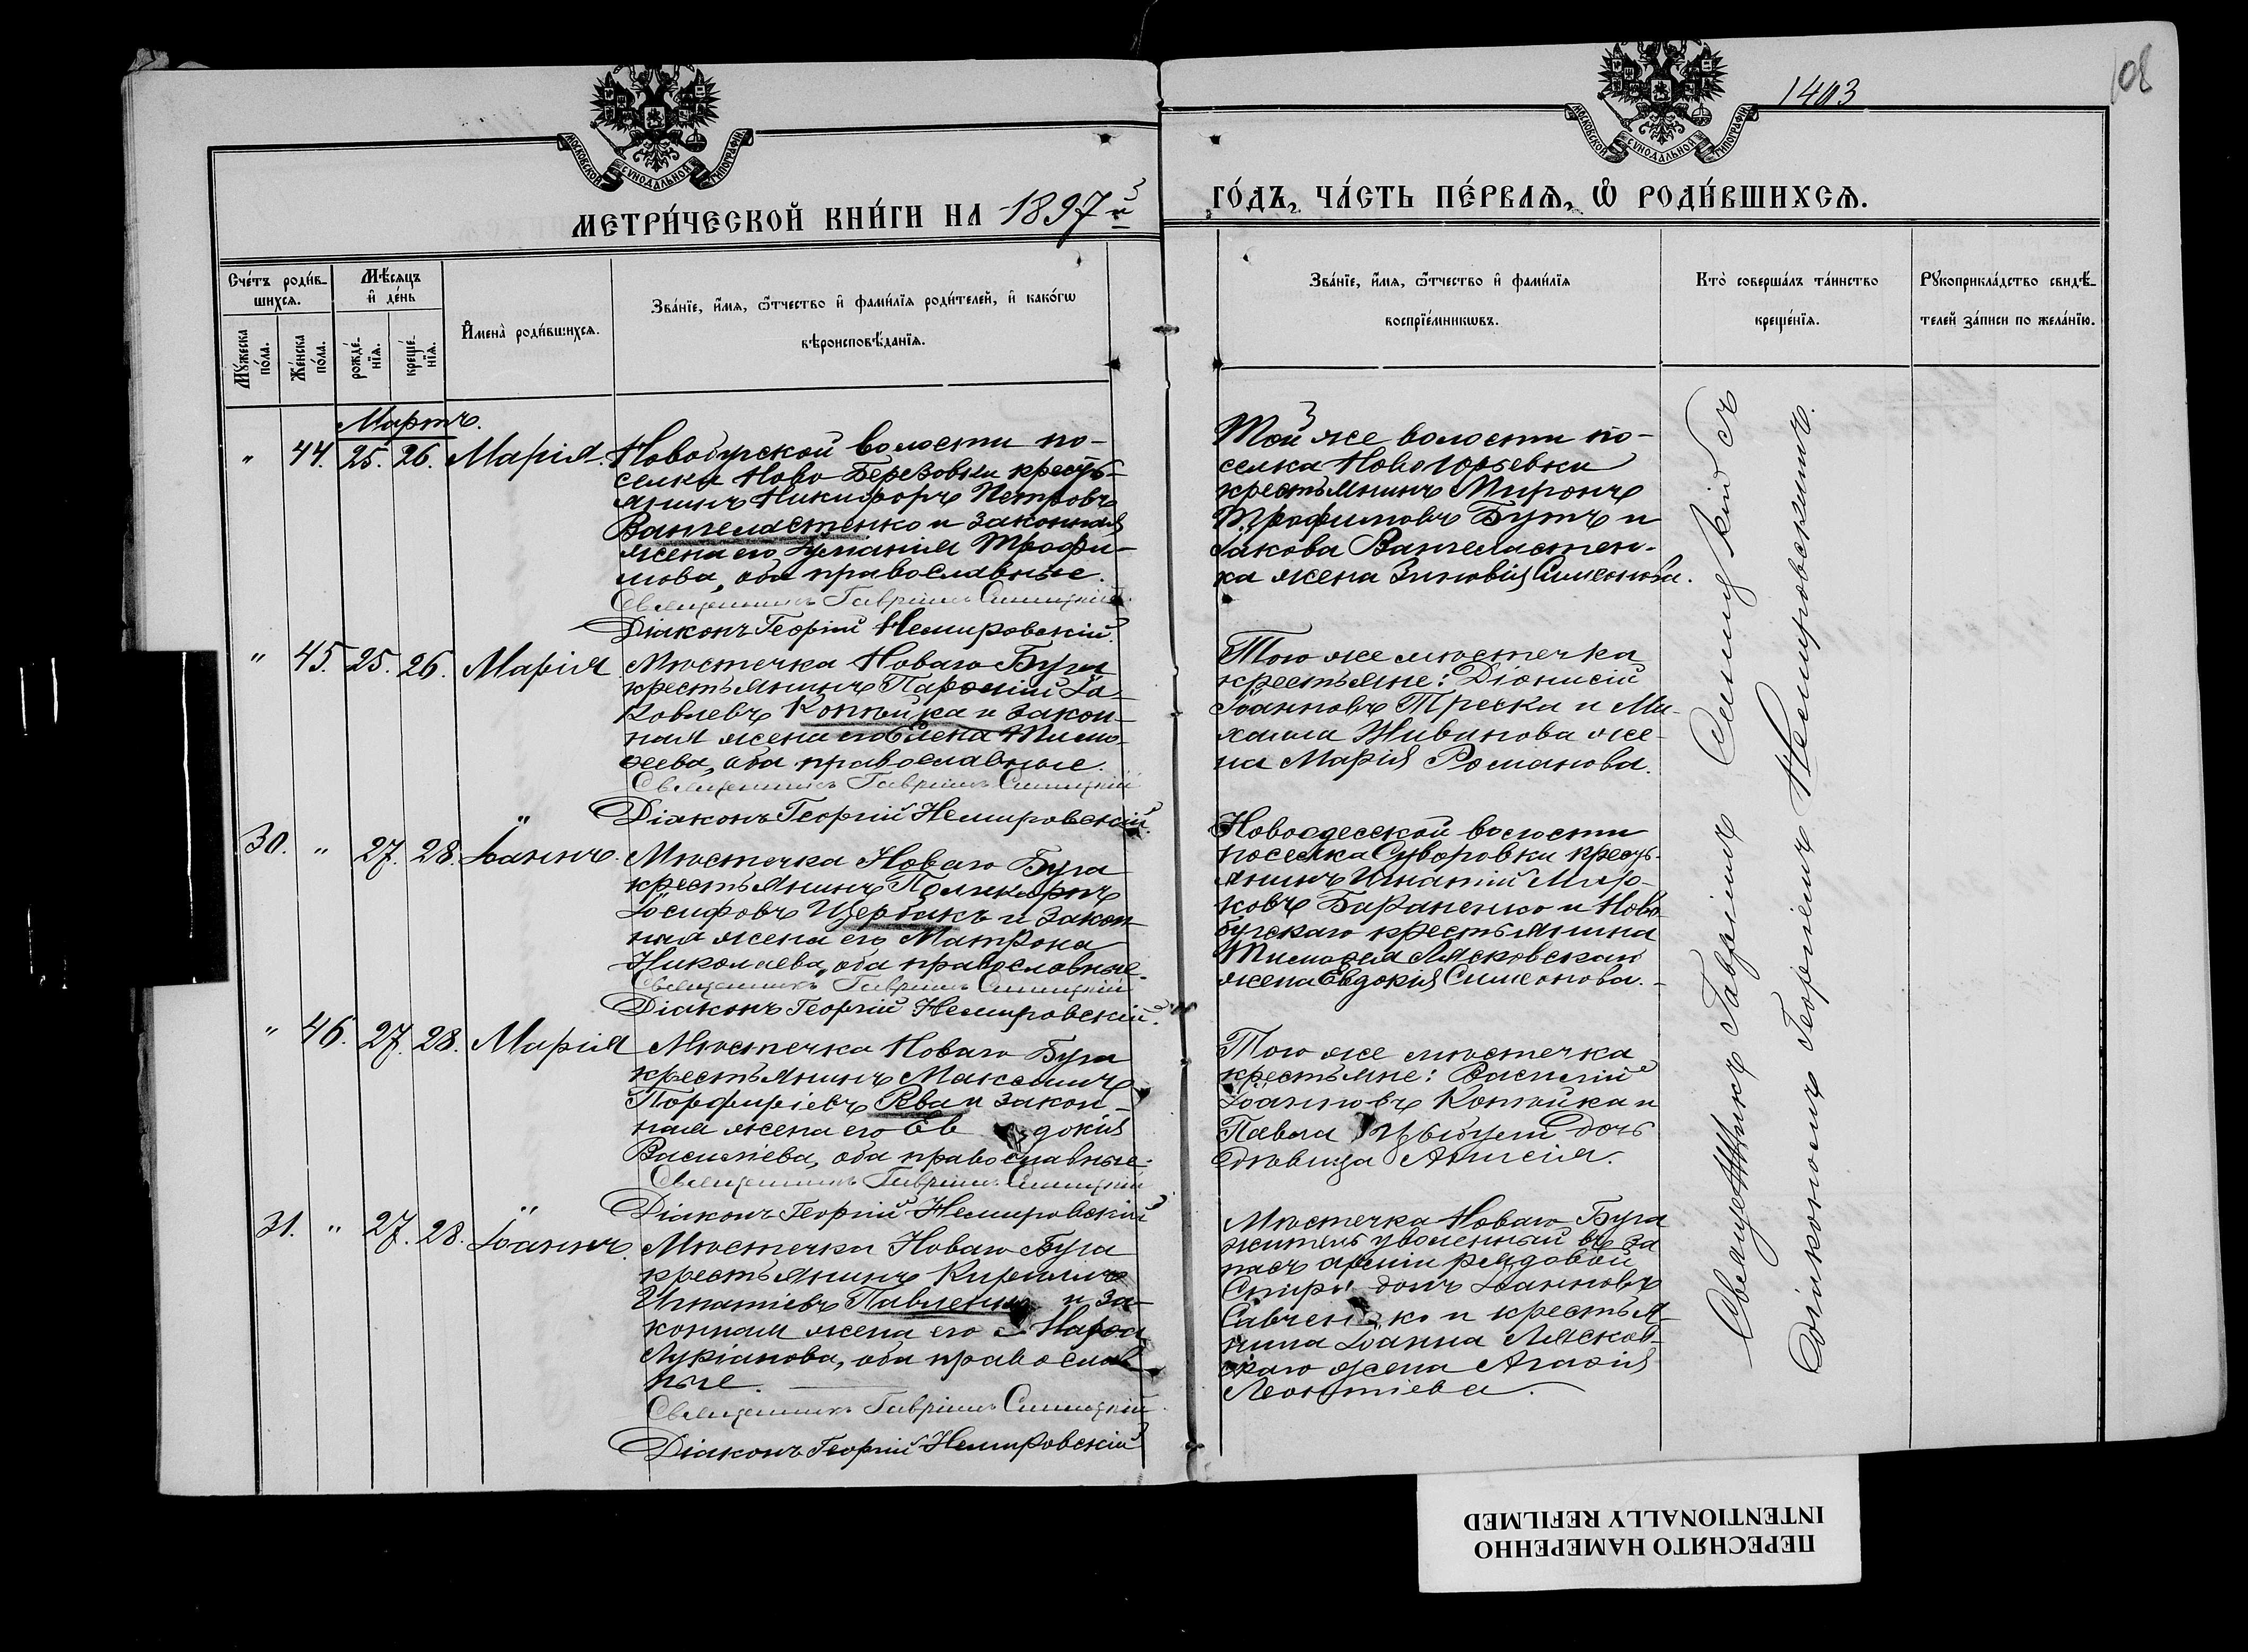 108
1403
МОСКОВСКОЙ СУНОДАЛЬНОЙ ТИПОГРАФІИ
МОСКОВСКОЙ СУНОДАЛЬНОЙ ТИПОГРАФІИ
МЕТРИ́ЧЕСКОЙ КНИ́ГИ НА 1897й
ГО́ДЪ, ЧА́СТЬ ПЕ́РВАѦ, Ѿ РОДИ́ВШИХСѦ.
Сче́тъ роди́в-
шихсѧ.
Мꙋ́жеска по́ла.
Же́нска по́ла.
Мѣ́сѧцъ и҆ де́нь
рожде́-нїѧ.
креще́-нїѧ.
И҆мена̀ роди́вшихсѧ.
Зва́нїе, и҆́мѧ, ѻ҆́тчество и҆ фами́лїѧ роди́телей, и҆ како́гѡ
вѣроисповѣ́данїѧ.
Зва́нїе, и҆́мѧ, ѻ҆́тчество и҆ фами́лїѧ
воспрїе́мникѡвъ.
Кто̀ соверша́лъ та́инство
креще́нїѧ.
Рꙋкоприкла́дство свидѣ́-
телей за́писи по жела́нїю.
Мартъ.
" 44. 25. 26. Марія.
Новобугской волости по-
селка Ново-Березовки кресть-
янинъ Никифоръ Петровъ
Вангеластенко и законная
жена его Трофи-
мова, оба православные.
Священникъ Гавріилъ Синицкій
Діаконъ Георгій Немировскій.
Той же волости по-
селка Новоюрьевки
крестьянинъ Миронъ
Трофимовъ Бутъ и
Іакова Вангеластен-
ка жена Зиновія Симеонова.
" 45. 25. 26. Марія
Мѣстечка Новаго Буга
крестьянинъ Парѳеній Іа
ковлевъ Копѣйка и закон-
ная жена его Елена Тимо-
ѳеева, оба православные.
Священникъ Гавріилъ Синицкій
Діаконъ Георгій Немировскій.
Того же мѣстечка
крестьяне: Діонисій
Іоанновъ Треска и Ми-
хаила Живанова же-
на Марія Романова.
30. " 27. 28. Іоаннъ.
Мѣстечка Новаго Буга
крестьянинъ Поликарпъ
Іосифовъ Щербакъ и закон
ная жена его Матрона
Николаева, оба православные.
Священникъ Гавріилъ Синицкій
Діаконъ Георгій Немировскій.
Новоодесской волости
поселка Суворовки кресть-
янинъ Игнатій Мар-
ковъ Бараненко и Ново
бугскаго крестьянина
Тимоѳея Лясковскаго
жена Евдокія Симеонова.
" 46. 27. 28. Марія
Мѣстечка Новаго Буга
крестьянинъ Максимъ
Порфиріевъ Ква и закон-
ная жена его Ев докія
Василіева, оба православные.
Священникъ Гавріилъ Синицкій
Діаконъ Георгій Немировскій
Того же мѣстечка
крестьяне: Василій
Іоанновъ Копѣйка и
Павла Цыбули дочь
дѣвица Анисія.
31. " 27. 28. Іоаннъ.
Мѣстечка Новаго Буга
крестьянинъ Кириллъ
Игнатіевъ Павленко и за-
конная жена его
Лукіанова, оба православ
ные.
Священникъ Гавріилъ Синицкій
Діаконъ Георгій Немировскій
Мѣстечка Новаго Буга
житель уволенный въ за
пасъ арміи рядовой
Спири донъ Іоанновъ
Савчен ко и крестья-
нина Іоанна Лясков-
скаго жена Агаѳія
Леонтіева.
Священникъ Гавріилъ Синицкій съ
Діакономъ Георгіемъ Немировскимъ.
ПЕРЕСНЯТО НАМЕРЕННО
INTENTIONALLY REFILMED